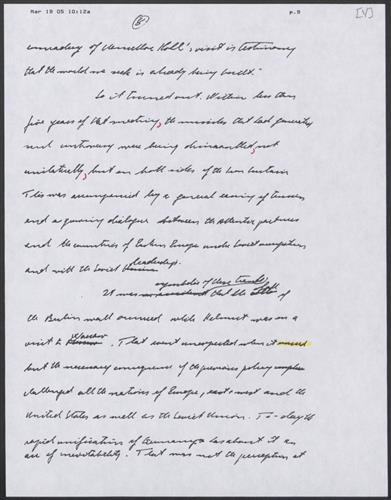 Mar 19 05 10:12a p.9
(8) [V]
comradery of Chancellor Kohl's visit is testimony
that the world we seek is already being built."
So it turned out. Within less than
five years of that meeting, the missiles that had generated
such controversy were being dismantled, not
unilaterally, but on both sides of the Iron Curtain
This was accompanied by a general easing of tensions
and a growing dialogue between the Atlantic partners
and the countries of Eastern Europe under Soviet occupation
and with the Soviet leadership.
It was symbolic of these trends that the fall of
the Berlin wall occurred while Helmut was on a
visit to Warsaw. That event unexpected when it
but the necessary consequence of the previous policy
challenged all the nations of Europe, east & west and the
United States as well as the Soviet Union. To-day the
rapid unification of Germany has about it an
air of inevitability. That was not the perception at